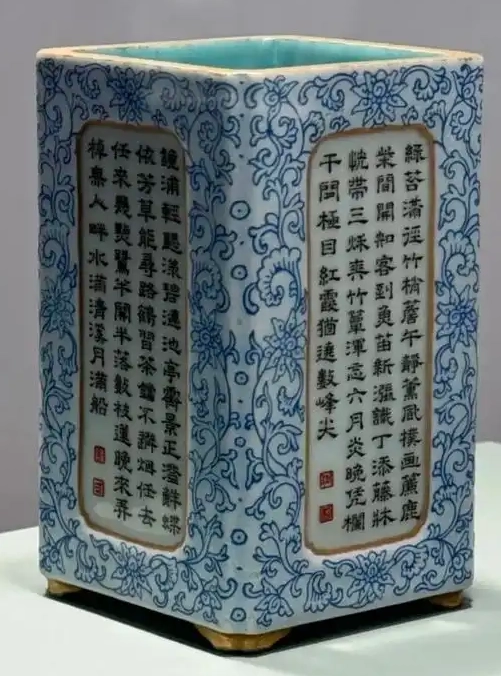 綠苔滿徑竹梢簷午靜薰風撲画簾鹿
柴閒開知客到魚笛新漲識丁添藤牀
恍帶三秋爽竹簟渾忘六月炎晚凭欄
干閒極目紅霞猶逗數峰尖
鏡浦輕颸漾碧漣池亭霽景正澄鮮蝶
依芳草能尋路鶴習茶鐺不避烟任去
任來幾點鷺半開半落數枝蓮晚來弄
棹無人畔水滿清溪月滿船